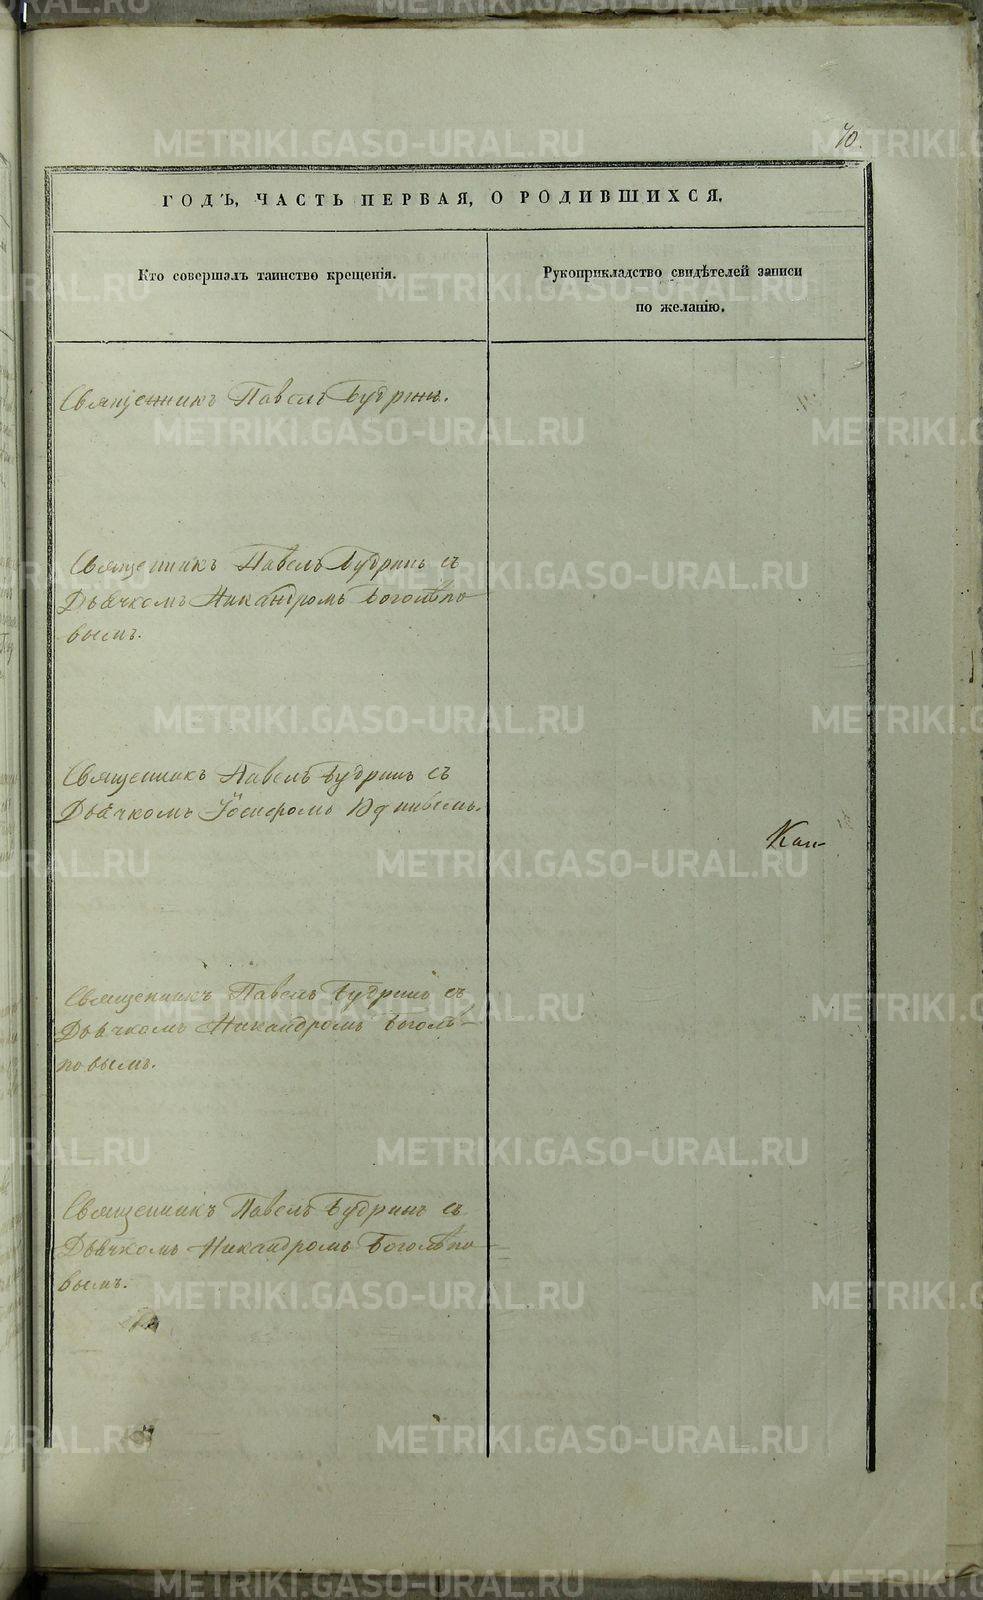 70.
ГОДЪ, ЧАСТЬ ПЕРВАЯ, О РОДИВШИХСЯ.
Кто совершалъ таинство крещенія.
Рукоприкладство свидѣтелей записи
по желанію.
Священникъ Павелъ Будринъ.
Священникъ Павелъ Будринъ съ
Дьячкомъ Никандромъ Боголѣпо-
вымъ.
Священникъ Павелъ Будринъ съ
Дьячкомъ Іосифомъ
Кан-
Священникъ Павелъ Будринъ съ
Дьячкомъ Никандромъ Боголѣ-
повымъ.
Священникъ Павелъ Будринъ съ
Дьячкомъ Никандромъ Боголѣпо-
вымъ.
METRIKI.GASO-URAL.RU